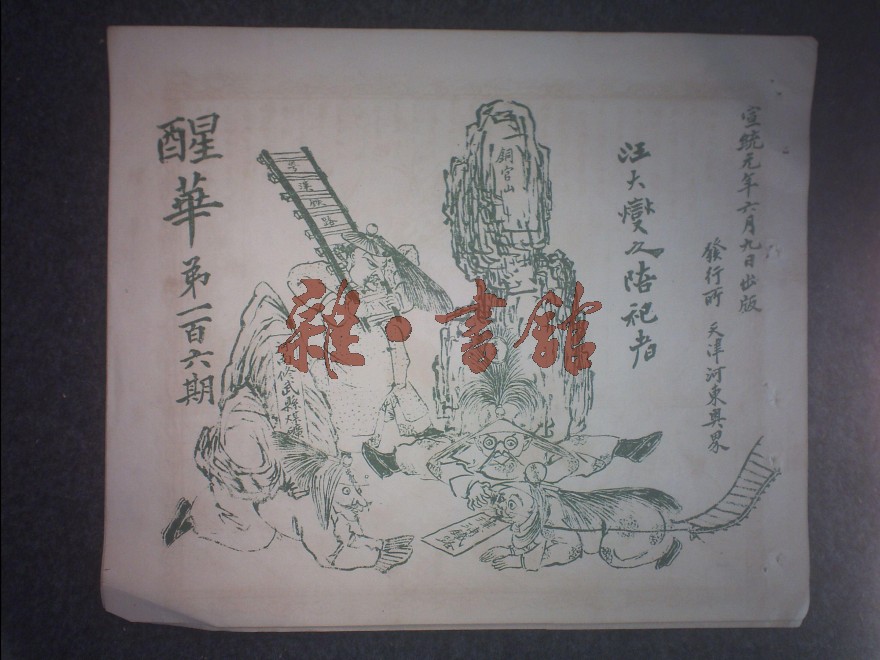 宣統元年六月九日出版
發行所 天津河東奧界
汪大燮之陪祀者
銅官山
醒華
第一百六期
雜·書館
武縣煤礦
鐵路